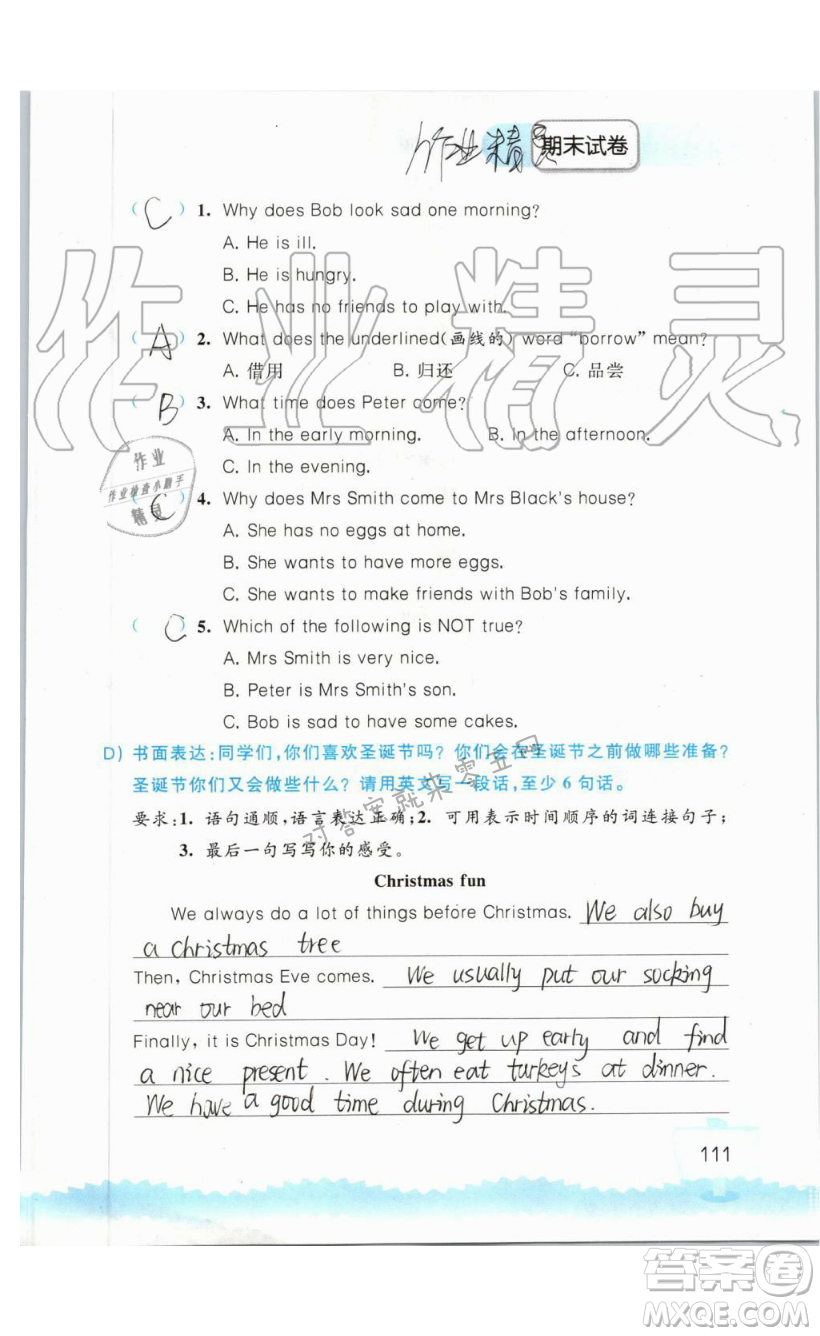 作业精灵 期末试卷
( C ) 1. Why does Bob look sad one morning?
A. He is ill.
B. He is hungry.
C. He has no friends to play with.
( A ) 2. What does the underlined(画线的) word "borrow" mean?
A. 借用 B. 归还 C. 品尝
( B ) 3. What time does Peter come?
A. In the early morning. B. In the afternoon.
C. In the evening.
( C ) 4. Why does Mrs Smith come to Mrs Black's house?
A. She has no eggs at home.
B. She wants to have more eggs.
C. She wants to make friends with Bob's family.
( C ) 5. Which of the following is NOT true?
A. Mrs Smith is very nice.
B. Peter is Mrs Smith's son.
C. Bob is sad to have some cakes.
D) 书面表达:同学们,你们喜欢圣诞节吗?你们会在圣诞节之前做哪些准备?
圣诞节你们又会做些什么?请用英文写一段话,至少6句话。
要求:1. 语句通顺,语言表达正确;2. 可用表示时间顺序的词连接句子;
3. 最后一句写写你的感受。
Christmas fun
We always do a lot of things before Christmas. We also buy
a christmas tree
Then, Christmas Eve comes. We usually put our socking
near our bed
Finally, it is Christmas Day! We get up early and find
a nice present. We often eat turkeys at dinner.
We have a good time during Christmas.
111
作业精灵
作业
作业检查小助手
精灵
对答案就来零五网
答案圈
MXQE.COM